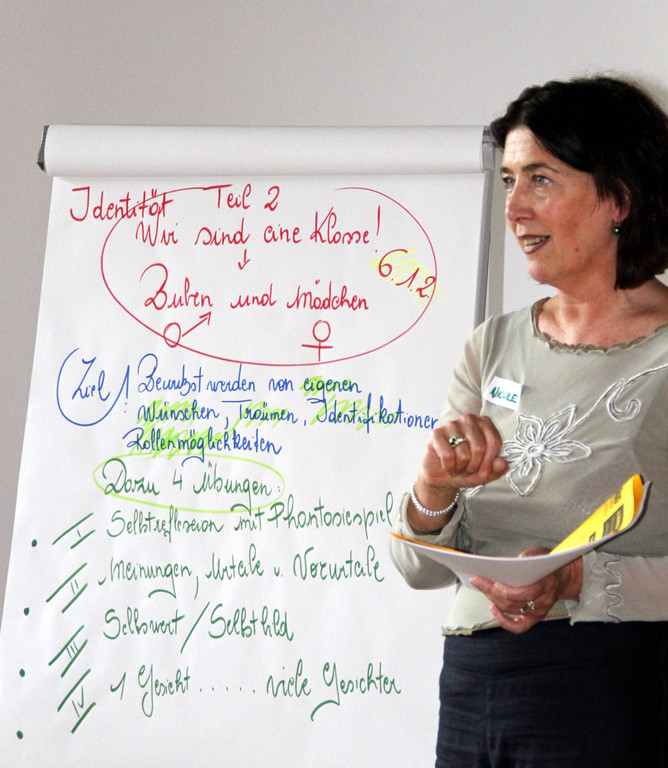 Identität Teil 2
Wir sind eine Klasse!
6.1.2.
Buben und Mädchen
Ziel: Bewusstwerden von eigenen
Wünschen, Träumen, Identifikationen
Rollenmöglichkeiten
Dazu 4 Übungen:
I Selbstreflexion mit Phantasiespiel
II Meinungen, Urteile u. Vorurteile
III Selbstwert / Selbstbild
IV 1 Gesicht ...... viele Gesichter
NICOLE